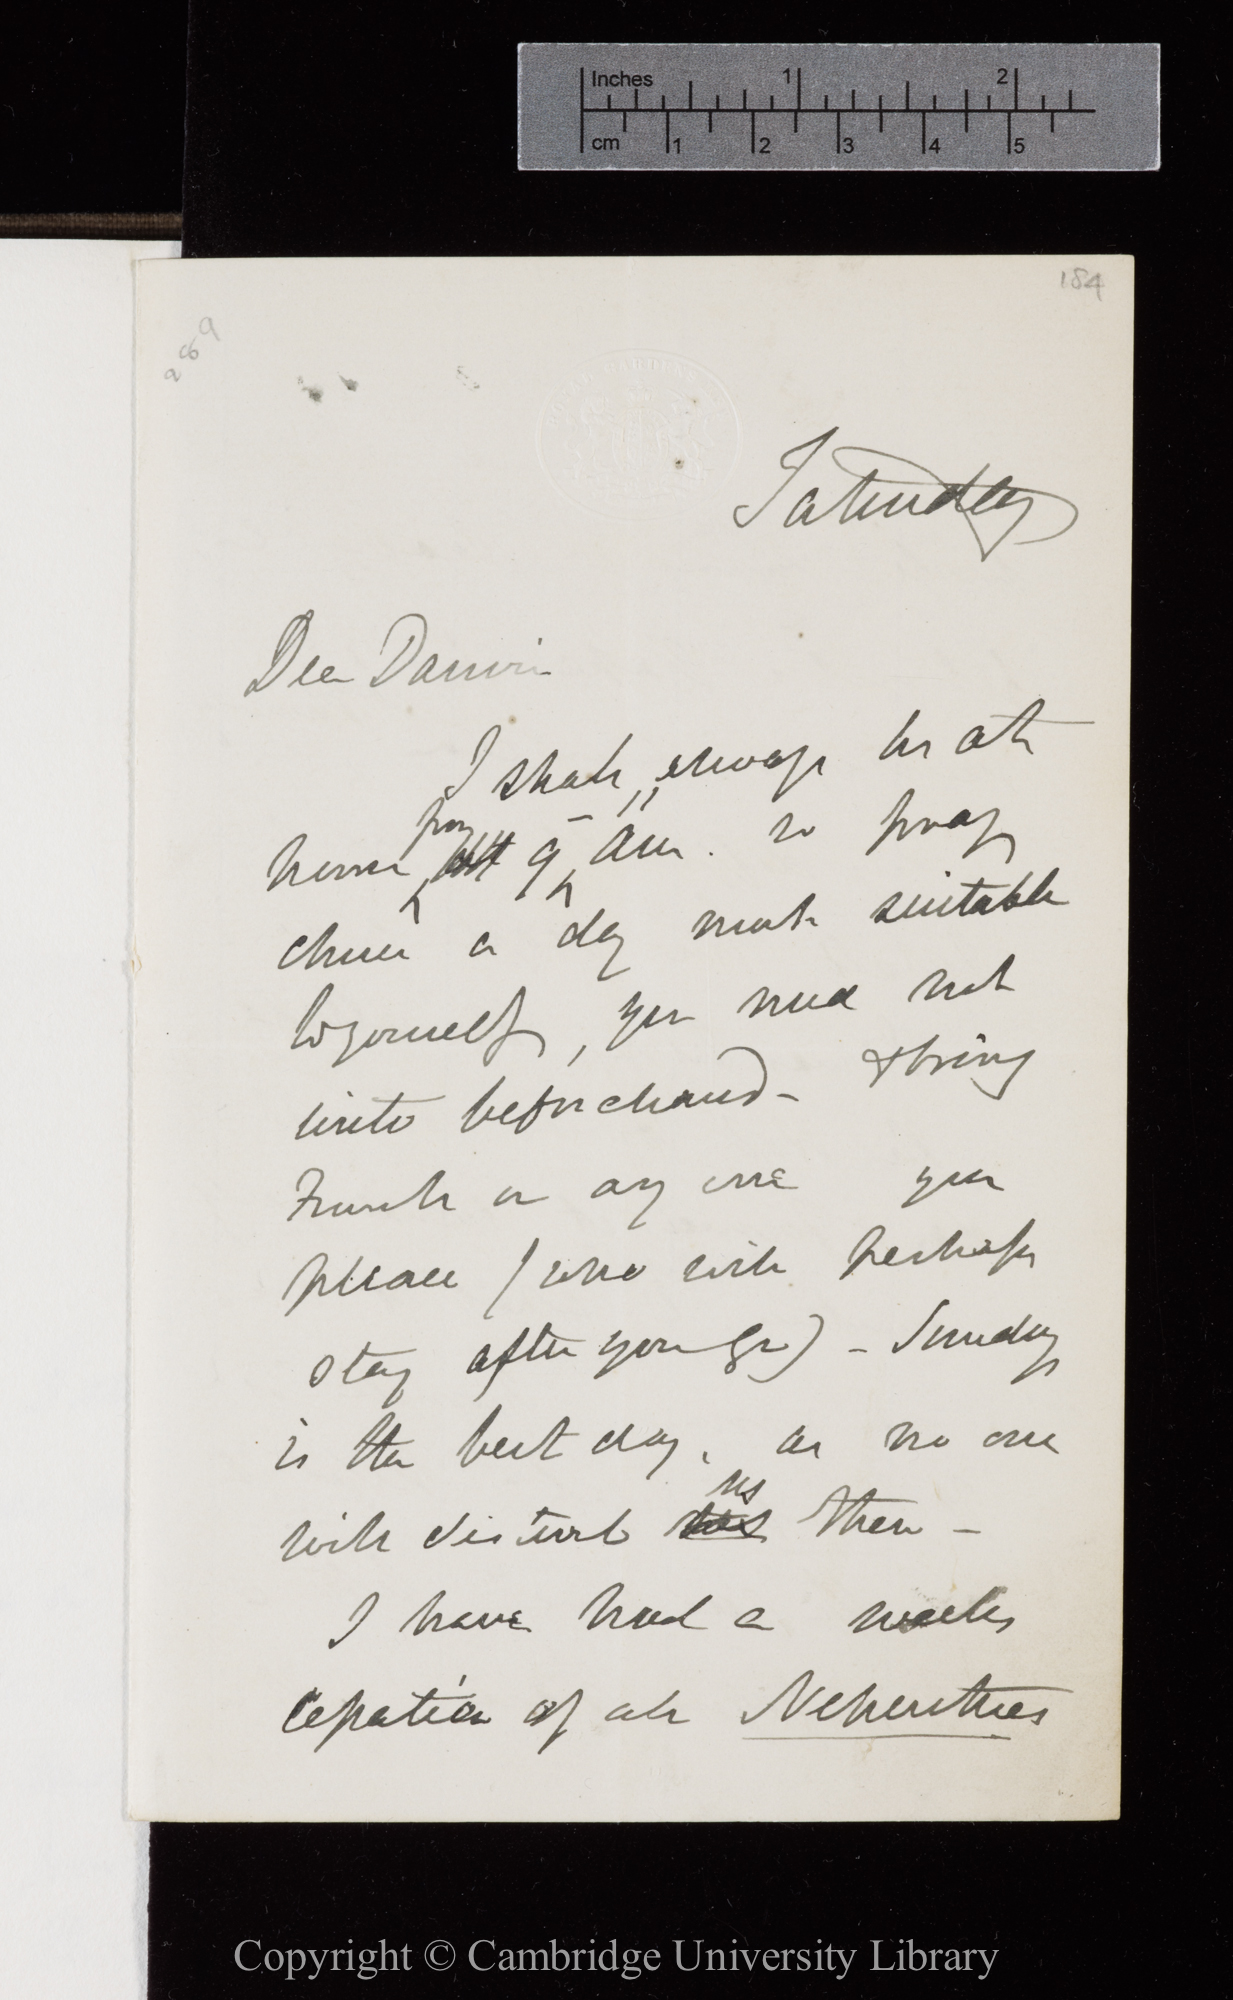 Inches 1 2
cm 1 2 3 4 5
184
269
Saturday
Dear Darwin
I shall always be at
home from 9 am. so pray
chuse a day most suitable
to yourself, you need not
write beforehand – & bring
Frank or any one you
please (who will perhaps
stay after you go) – Sunday
is the best day, as no one
will disturb us then –
I have had a weeks
of all Nepenthes
Copyright © Cambridge University Library